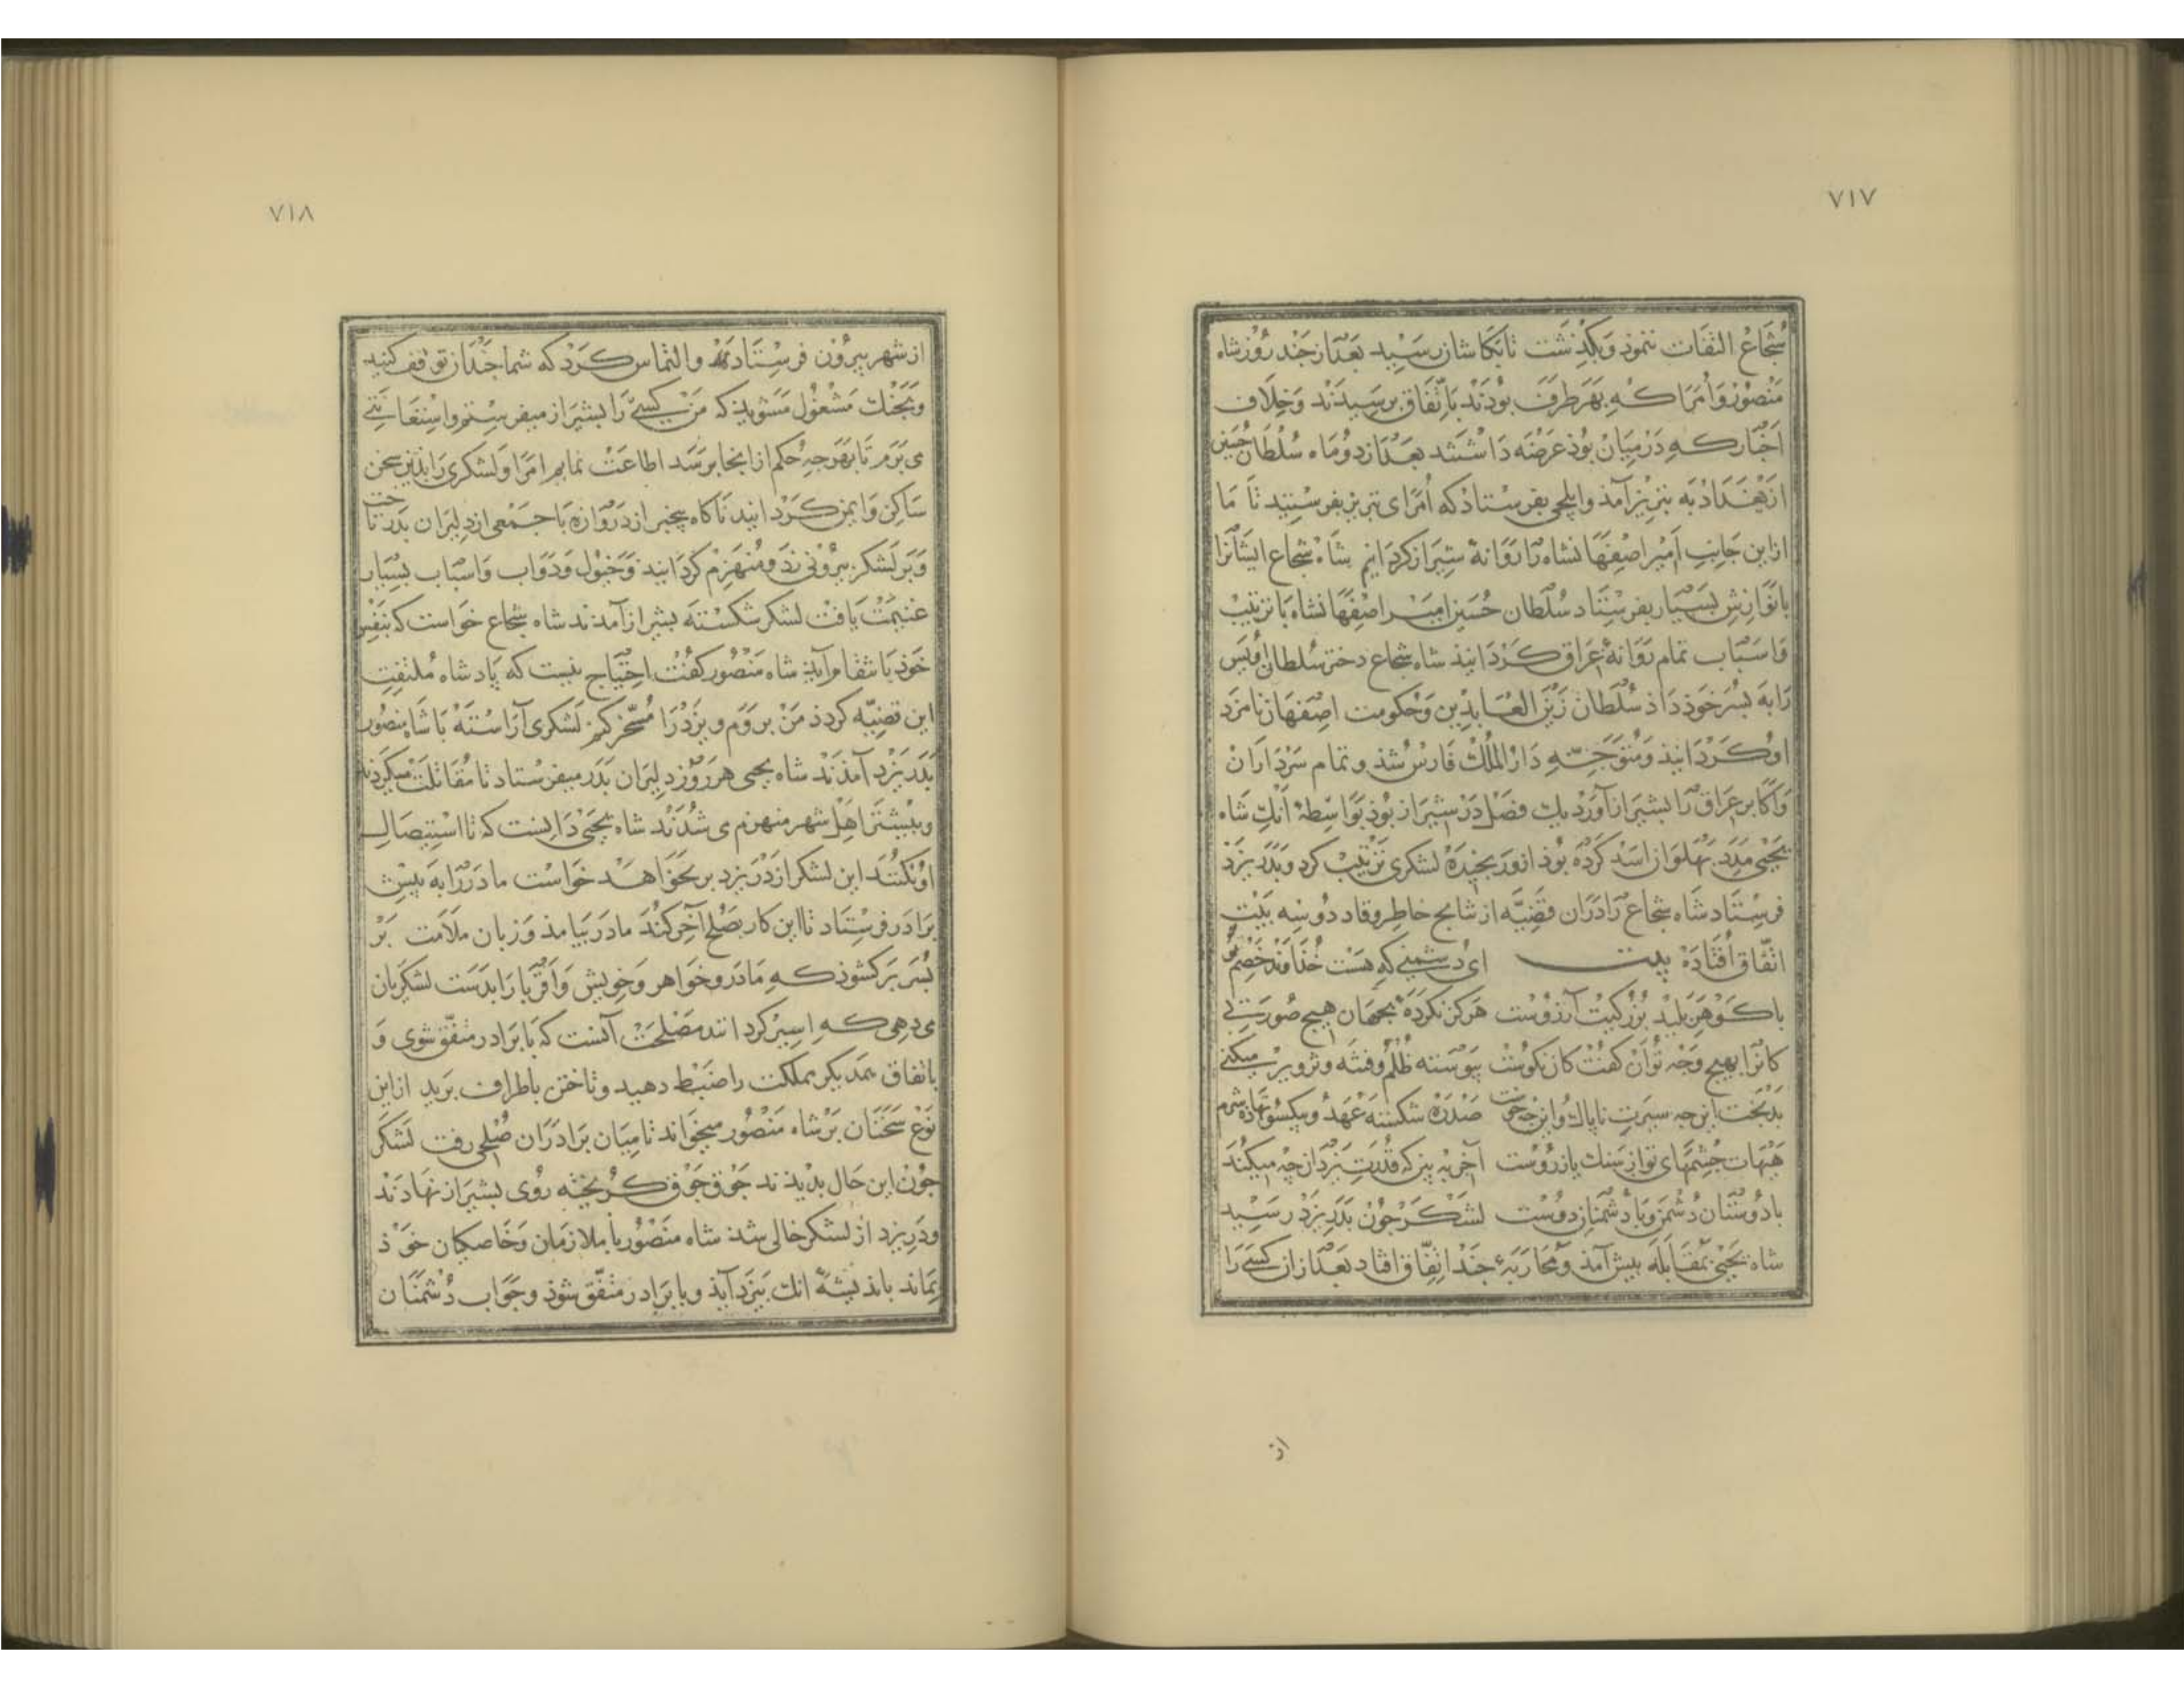 ٧١٧
شُجَاعْ التفَات ننموذ وَبكِذشت تابَكاشان رسَيد بَعْدَاز جَند رُوز شاه
مَنصُوْر وَاُمَرَا كه بَهَر طرَفَ بُودَند باِتّفَاق برسَيدَند وَخِلَاف
اَخبَار كه دَرميَان بُوذ عَرْضَه دَاشتند بَعْدَاز دوُمَاه سُلطَان حُسَين
از بَغدَاد به تبريز آمَذ وايلچى بفرستاد كه اُمَرَاى تبريز بفرستيد تا ما
ازاين جَانِب اَمِير اصِفهَانشاه را رَوَانهٔ شيرَاز كردَانيم شاه شجاع ايشانرَا
بانوَازشِ بَسيَار بفرستَاد سُلطان حُسَين امير اصِفهَانشاه بَاترتيبْ
وَاسبَاب تمام رَوَانهٔ عِرَاق كَردَانيذ شاه شجاع دختر سُلطان اُويس
رَا بَه بسَر خوَذ دَاذ سُلطَان زَيْن العَابدِين وَحْكومت اصِفهَان نامزَد
اوُ كَردَانيذ وَمُتوَجّه دَارْ المُلك فَارسْ شذ وتمام سَرْدَارَان
وَاَكابر عِرَاق را بشيرَاز آورد يك فصَل دَر شيرَاز بُوذ بوَاسِطهٔ آنك شاه
يَحْيى مدَد بَهلوَان اسَد كرده بُوذ ازو رَنجيدَهْ لشكرى ترتيبْ كرد وَبَدَر يزد
فرسْتَاد شاه شجاع رَا دَرَان قَضيّه از نتايج خاطر وقاد دوُ سِه بَيْت
اتفاق اُفتادَه بيت اى دُشمنى كه هسْت خُذاوَند خَصْم تو
بَاكَوْهَر بَليد بُزرْكيت آرزوُست هَركز نكردَهٔ بجهَان هيچ صُورَتى
كانرَا بهيچ وَجه توَان كفت كان نكوُست پيوَسته ظُلْم وفتنَه وتزوير ميكنى
بَدبَخت اين چه سيرَت ناپاك واين چه خوست صَدرَه شكستهَ عَهْد وبيكسُو نهاذه شرم
هَيْهَات چشمهَاى تو از سنك يا زروُست آخر به بين كه قُدرَت يَزدان چه ميكند
بادُوستان دُشمن وبَا دُشمنان دوُست لشكَر چون بَدَر يَزد رسَيد
شاه يَحْيى بمقَابلَه پيش آمَذ ومُحَاربَهٔ چَند اتفّاق افتاد بَعْدَازان كسىَ رَا
از
٧١٨
از شهر بيرُون فرسْتَاد والتماس كَرْد كه شما چَندَان توقف كنيد
وبَجنك مَشغُول مَشويد كه مَن كسى را بشيرَاز ميفرستم واستعانتى
مى بَرَم تا بَهَر چه حُكم از انجا برسَد اطاعَت نمايم امَرا وَلشكرى رَا بذين سخن
سَاكن وَايمن كَردَانيد ناكاه بيخبر از دَروَازه با جَمعى از دليرَان بَدَر تاخت
وَبَر لَشكر بيرُونى زد ومُنهَزِم كردَانيد وَخيُول وَدَوَاب وَاسبَاب بسيَار
غنيمَت يافت لشكر شكستَه بشيراز آمَدند شاه شجاع خوَاست كه بنَفس
خوَذ بانتقام آيذ شاه مَنصُور كفت احتياج نيست كه پادشاه مُلتفِت
اين قضيّه كردذ مَن برَوَم ويزْد را مُسَخّر كنم لَشكرى آرَاستَه با شاه منصُور
بَدَر يَزْد آمَدَند شاه يحيى هر رُوز دليرَان بَدَر ميفرستاد تا مُقَاتلَت ميكردند
وبيشتر اهل شهر منهزم مى شدَند شاه يَحْيى دَانست كه تا استيصَال
او نكنند اين لشكر از دَر يزد بر نخوَاهد خَواست مادَر را به پيش
برَادَر فرستَاد تا اين كار بصُلح آخر كنَد مادَر بيامذ وَزبان ملاَمَت بَر
بُسَر بَركشوذ كه مادَر وخوَاهر وَخويش وَاقربا رَا بدَست لشكريان
مى دهى كه اسير كردانند مَصْلحَت آنست كه با برادر متفّق شوى وَ
باتفاق يكديكر مملكت را ضَبْط دهيد وتاختن باطراف بَريد ازاين
نوَع سَخنان بَر شاه مَنصُور ميخواند تا ميَان برَادَرَان صُلحى رفت لَشكر
چُون اين حَال بديذند جَوق جَوق كُريخته روُى بشيرَاز نهَادند
ودَر يزد از لَشكر خالى شذ شاه منصُور با ملازمان وَخَاصكيان خوَذ
بمَاند باَنديشَهٔ انك بيَزد آيذ وبا برَادَر متفّق شوذ وجَوَاب دُشمَنان